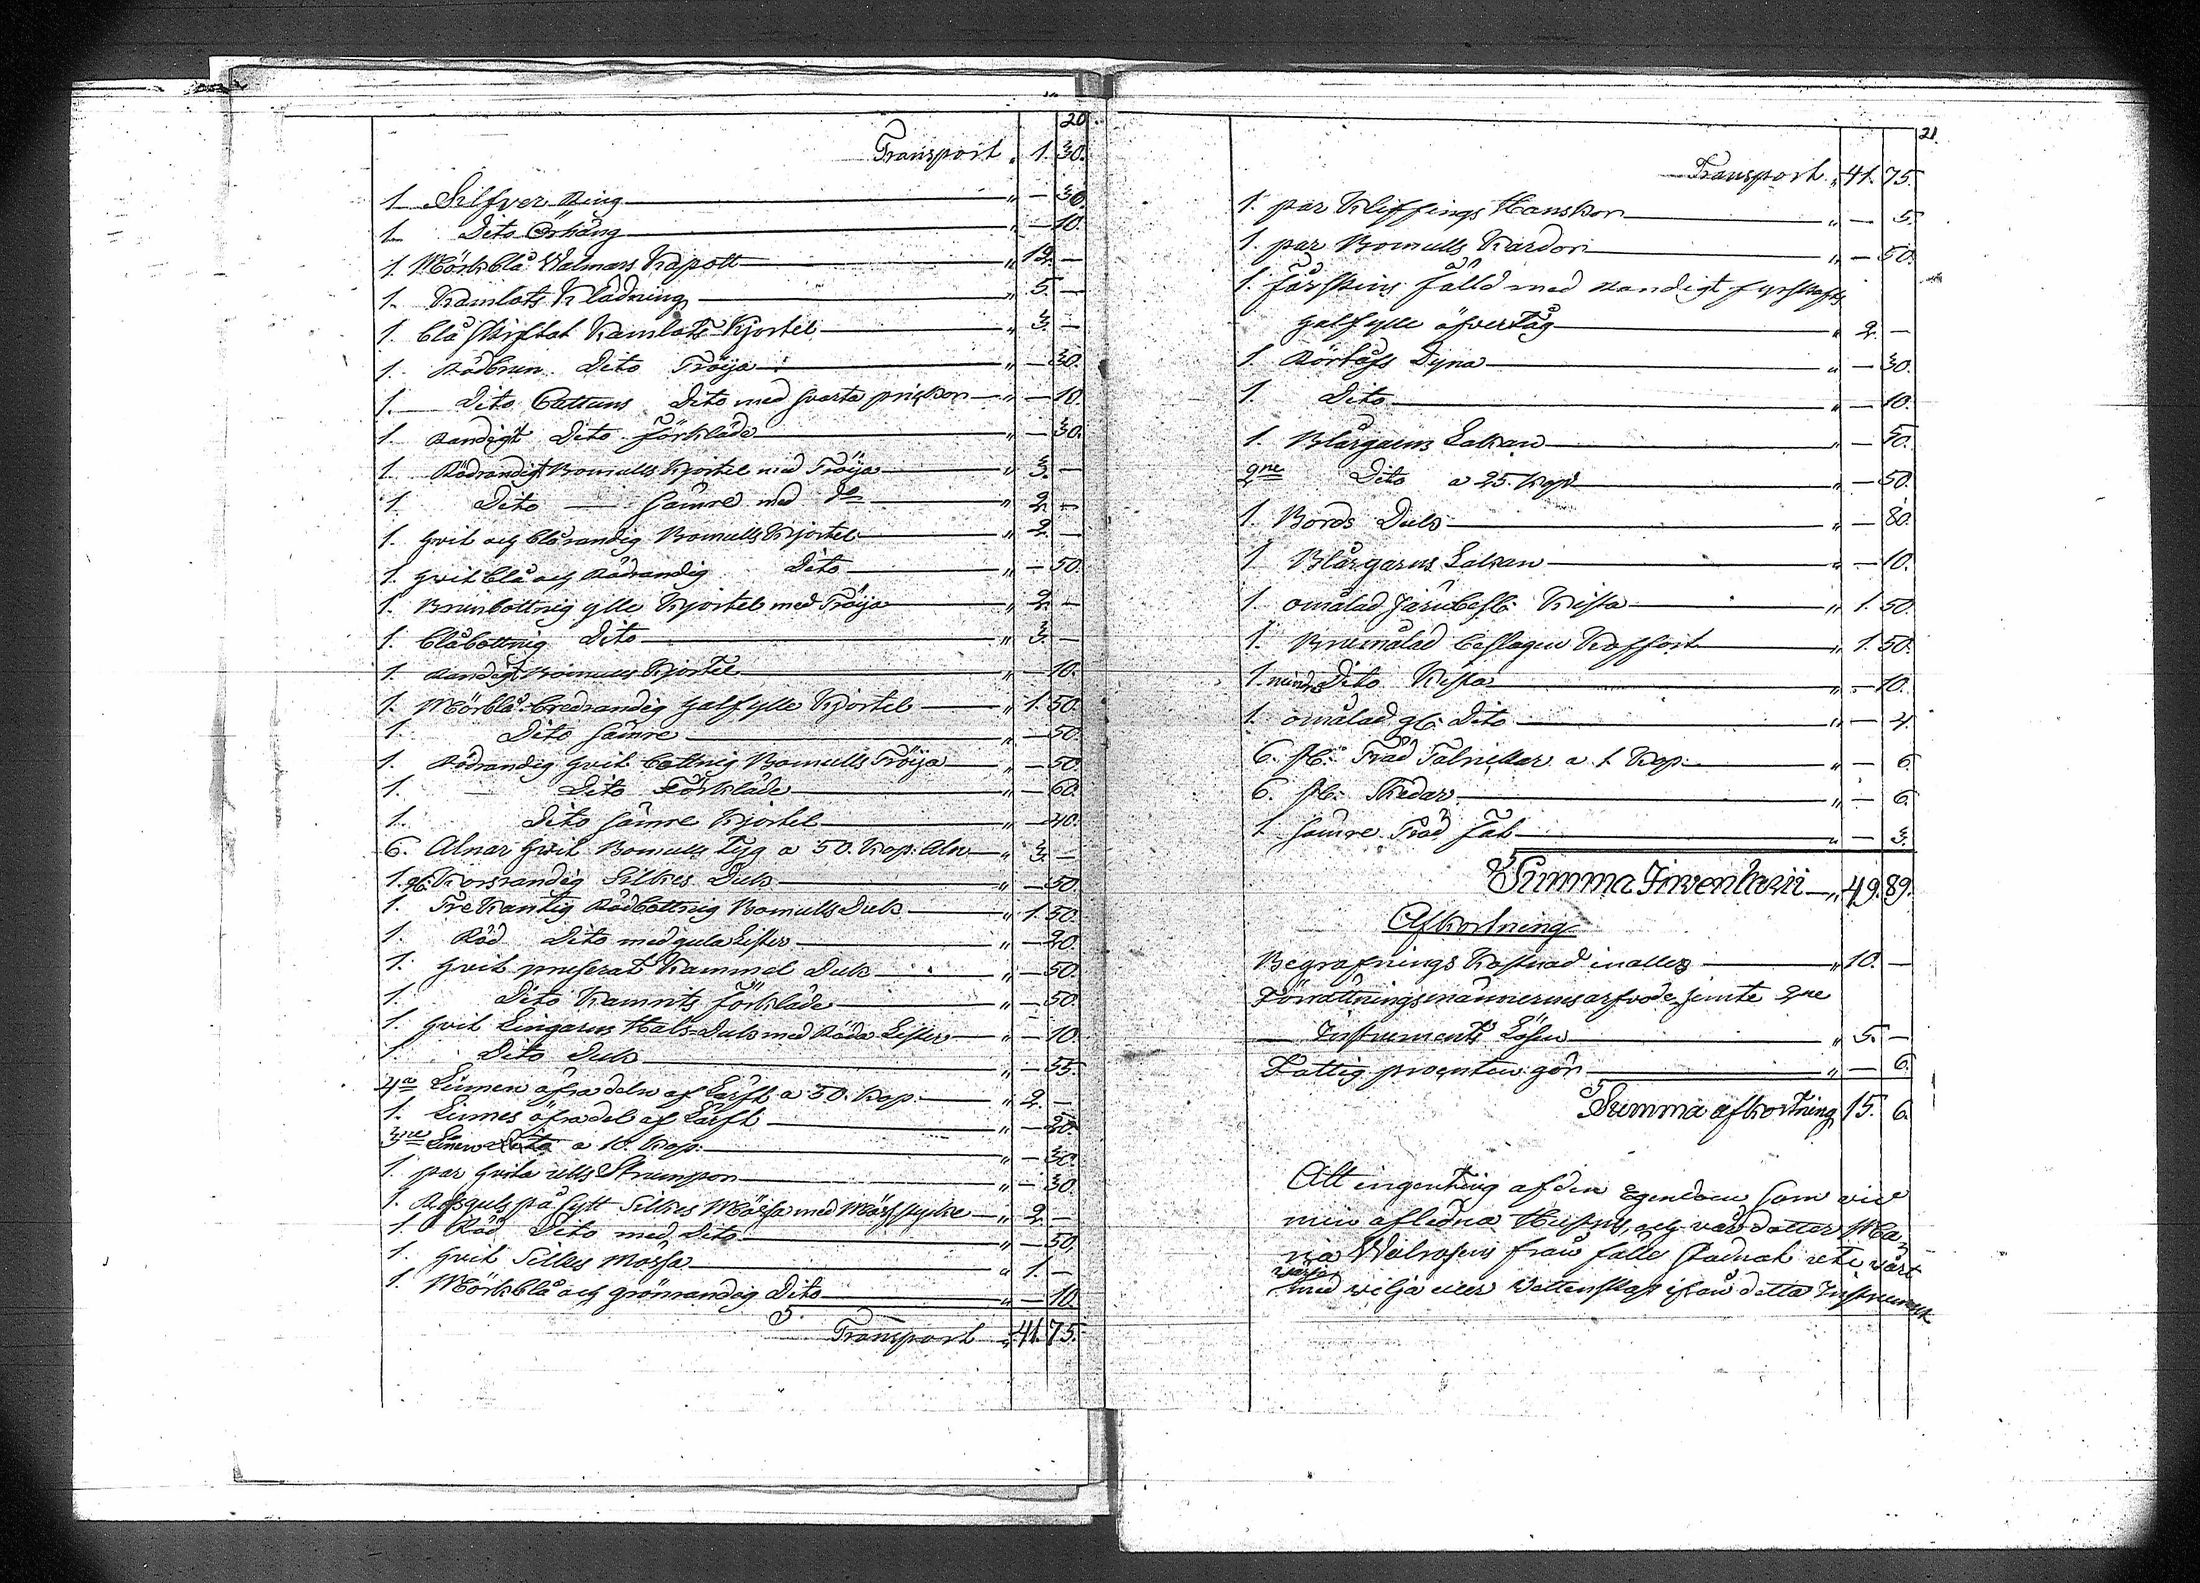 20.
Transport „ 1. 30.
1. Silfver Ring „ — 30.
1. Dito Örhäng „ — 10.
1. Mörkblå Walmars Kapott „ 12. —
1. Kamlots Klädning „ 5. —
1. blå skiftat Kamlots Kjortel „ 3. —
1. Rödbrun Dito Tröija „ — 30.
1. Dito Cattuns Dito med svarta prickor „ — 10.
1. Randigt Dito förkläde „ — 30.
1. Rödrandigt Bomulls Kjortel med Tröija „ 3. —
1. Dito — sämre med do „ 2. —
1. hvit och blårandig Bomulls Kjortel „ 2. —
1. hvit blå och Rödrandig Dito „ — 50.
1. Brunbottnig ylle Kjortel med Tröija „ 2. —
1. blåbottnig Dito „ 3. —
1. Randigt Bomulls Kjortel „ — 10.
1. Mörblå bredrandig halfylle Kjortel „ 1. 50.
1. Dito sämre „ — 50.
1. Rödrandig hvit bottnig Bomulls Tröija „ — 50.
1. Dito Förkläde „ — 60.
1. Dito sämre Kjortel „ — 40.
6. Alnar hvit Bomulls tyg a 50. Kop: Aln „ 3. —
1. gl: Korsrandig Silkes Duk „ — 50.
1. Trekantig Rödbottnig Bomulls Duk „ 1. 50.
1. Röd Dito med gula Lister „ — 20.
1. hvit Kammel Duk „ — 50.
1. Dito Förkläde „ — 50.
1. hvit Lingarns Hals-Duk med Röda Lister „ — 10.
1. Dito Duk „ — 55.
4a Linnen öfra deln af Lärft a 50. Kop: „ 2. —
1. Linnes öfradel af Lärft „ — 20.
3ne Linnen Dito a 10. Kop: „ — 30.
1. par hvita ulls Strumpor „ — 30.
1. på sytt Silkes Mössa med Mösstycke „ 2. —
1. Röd Dito med Dito „ — 50.
1. hvit Silkes Mössa „ 1. —
1. Mörkblå och grönrandig Dito „ — 10.
Transport „ 41. 75.
21.
Transport „ 41. 75.
1. par Klippings Handskor „ — 5.
1. par Bomulls Kardor „ — 50.
1. fårskins fälld med Randigt fyrskafts
halfylle öfvertåg „ 2. —
1. Dyna „ — 30.
1. Dito „ — 10.
1. Blårgarns Lakan „ — 50.
2ne Dito a 25. Kop: „ — 50.
1. Bords Duk „ — 80.
1. Blårgarns Lakan „ — 10.
1. omålad järnbesl: Kista „ 1. 50.
1. Brunmålad beslagen Koffort „ 1. 50.
1. mindre Dito Kista „ — 10.
1. omålad gl: Dito „ — 4.
6. st: Träd Talrickar a 1 Kop: „ — 6.
6. st: Skedar „ — 6.
1 sämre Träd fat „ — 3.
Summa Inventarii „ 49. 89.
Afkortning
Begrafnings Kostnad inalles „ 10. —
Förrättningsmännernes arfvode jemte 2ne
Instruments Lösen „ 5. —
Fattig procenten gör „ — 6.
Summa afkortning 15. 6.
Att ingenting af den Egendom som vid
min aflidna Hustrus, och vår dotter Ma-
ria Walrosens frånfälle stadnat uti vårt
värjo
med vilja eller Vettenskap ifrån detta Instrument